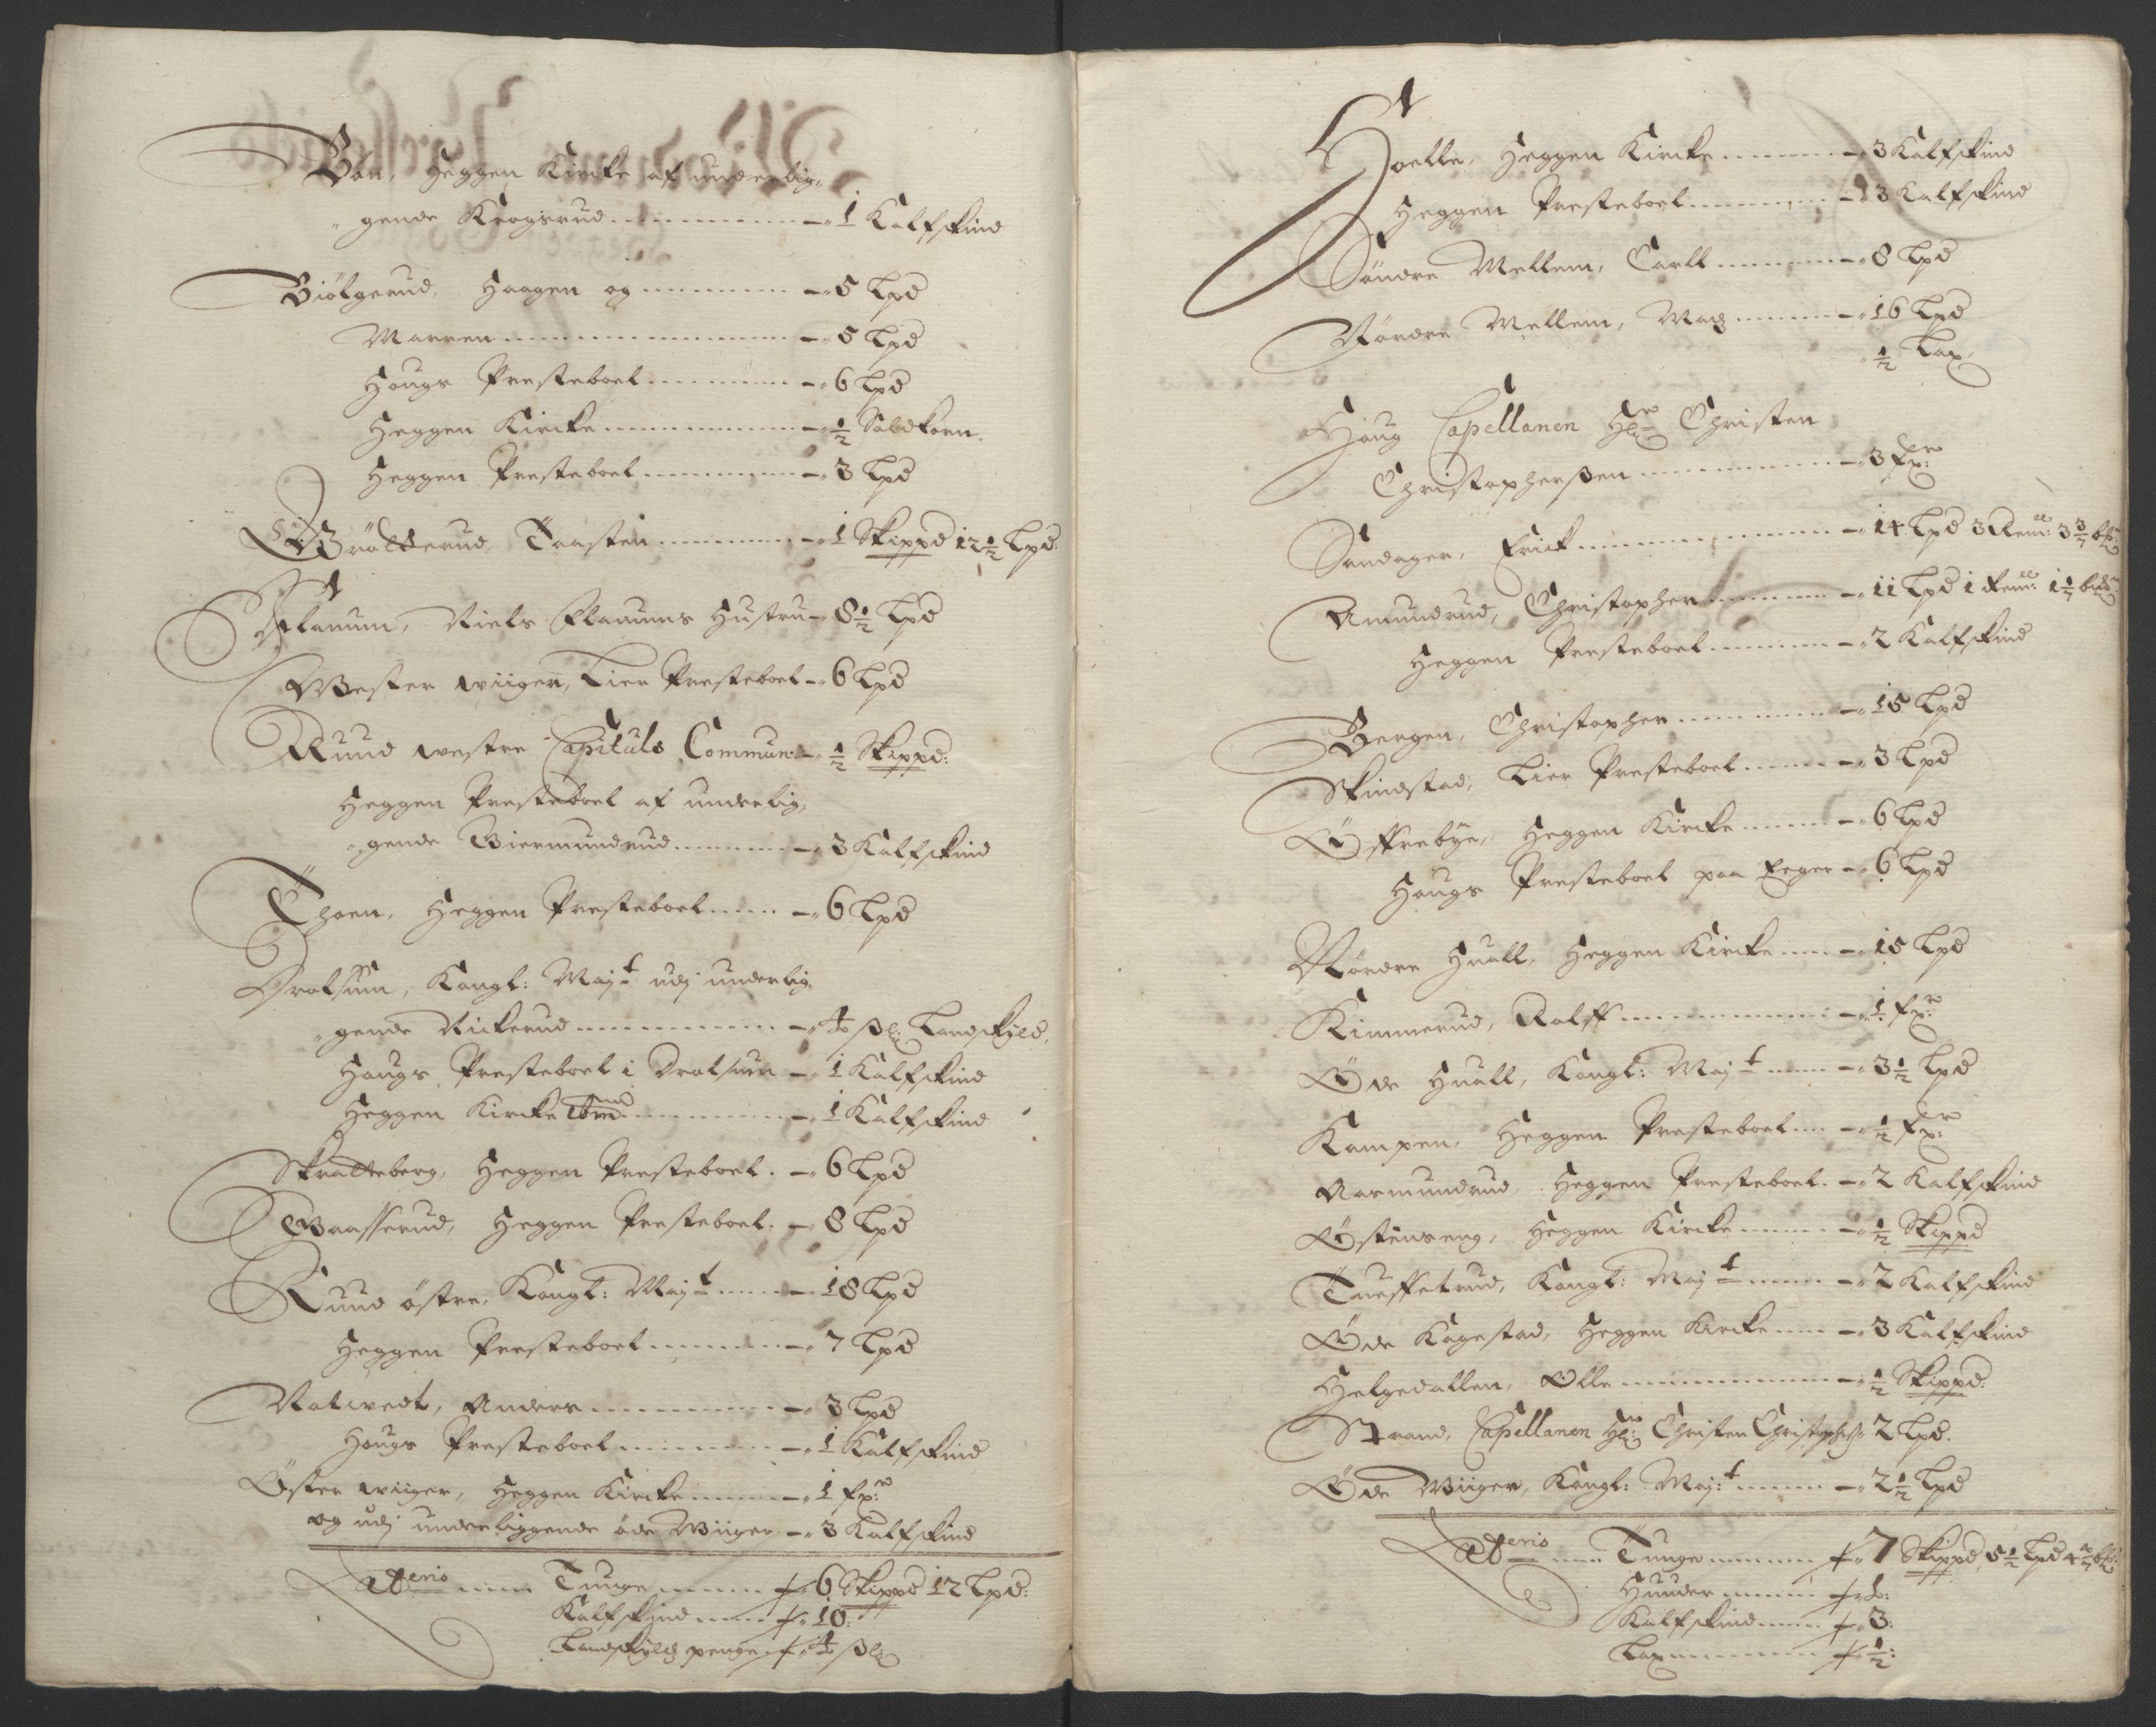 Bön, Heggen Kircke af underlig-
gende Krogsrud ............ - 1 Kalfskind
Biölgerud, Haagen og ............ - 5 Lpd
Marren ............ - 5 Lpd
Hougs Presteboel ............ - 6 Lpd
Heggen Kircke ............ - ½ Saldkorn
Heggen Presteboel ............ - 3 Lpd
Bröttterud, Torsten ............ - 1 Skippd 12½ Lpd:
Flanum, Niels Flanums Hustru - 8½ Lpd
Wester wiiger, Lier Presteboel - 6 Lpd
Ruud westre Capituls Commun: - ½ Skippd:
Heggen Presteboel af underlig,
gende Biermundrud ............ - 3 Kalfskind
Thoen, Heggen Presteboel ...... - 6 Lpd
Drolsum, Kongl: Majt udj underlig,
gende Nickerud ............ - 4 ßl: Landskyld,
Hougs Presteboel i Drolsum - 1 Kalfskind
Heggen Kircke ibmd ............ - 1 Kalfskind
Skratteberg, Heggen Presteboel. - 6 Lpd
Baasserud, Heggen Presteboel. - 8 Lpd
Ruud östre, Kongl: Majt ...... - 18 Lpd
Heggen Presteboel ............ - 7 Lpd
Nalwedt, Anders ............ - 3 Lpd
Hougs Presteboel ............ - 1 Kalfskind
Öster wiiger, Heggen Kircke ...... - 1 fr:
og udj underliggende öde Wiiger - 3 Kalfskind
Laterio ...... Tunge ...... 6 Skippd 12 Lpd:
Kalfskind ...... 10:
Landskyldz penge 4 ßl:
Hoelle, Heggen Kircke ............ - 3 Kalfskind
Heggen Presteboel ............ - 3 Kalfskind
Söndre Mellem, Carll ............ - 8 Lpd
Nördre Mellem, Madz ............ - 16 Lpd
½ Lax,
Houg Capellanen Hr: Christen
Christopherßen ............ - 3 fr:
Sondager, Erick ............ - 14 Lpd 3 Rem: 3 3/7 bß:
Amundrud, Christopher ............ - 11 Lpd 1 Rem:
Heggen Presteboel ............ - 2 Kalfskind
Bergen, Christopher ............ - 15 Lpd
Skindstad, Lier Presteboel ...... - 3 Lpd
Öffrebye, Heggen Kircke ...... - 6 Lpd
Hougs Presteboel paa Eeger - 6 Lpd
Nördre Huall, Heggen Kircke ...... - 15 Lpd
Kimmerud, Rolff ............ - 1 fr:
Öde Huall, Kongl: Majt ...... - 3½ Lpd
Kampen, Heggen Presteboel ...... - ½ fr:
Aasmundrud, Heggen Presteboel. - 2 Kalfskind
Östenseng, Heggen Kircke ...... - ½ Skippd
Tueffetrud, Kongl: Majt ...... - 2 Kalfskind
Öde Kagestad, Heggen Kircke ...... - 3 Kalfskind
Helgedallen, Olle ............ - ½ Skippd:
Strand, Capellanen Hr: Christen Christophers: 2 Lpd.
Öde Wiiger, Kongl: Maj:t ...... - 2½ Lpd
Laterio ...... Tunge ...... 7 Skippd, 5½ Lpd
Huuder ...... 1:
Kalfskind ...... 3:
Lax ...... ½: